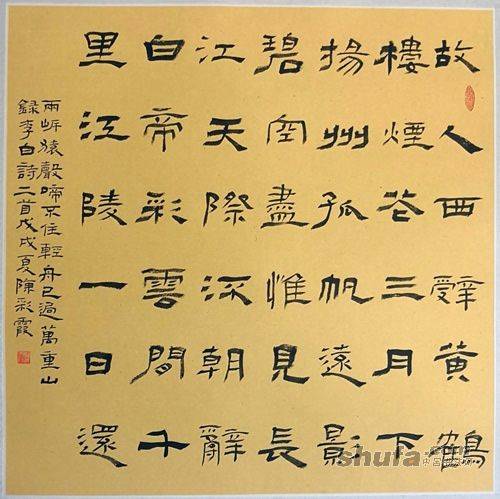 故人西辭黃鶴
樓煙花三月下
揚州孤帆遠影
碧空盡惟見長
江天際流朝辭
白帝彩雲間千
里江陵一日還
兩岸猿聲啼不住輕舟已過萬重山
錄李白詩二首戊戌夏陳彩霞
shufa